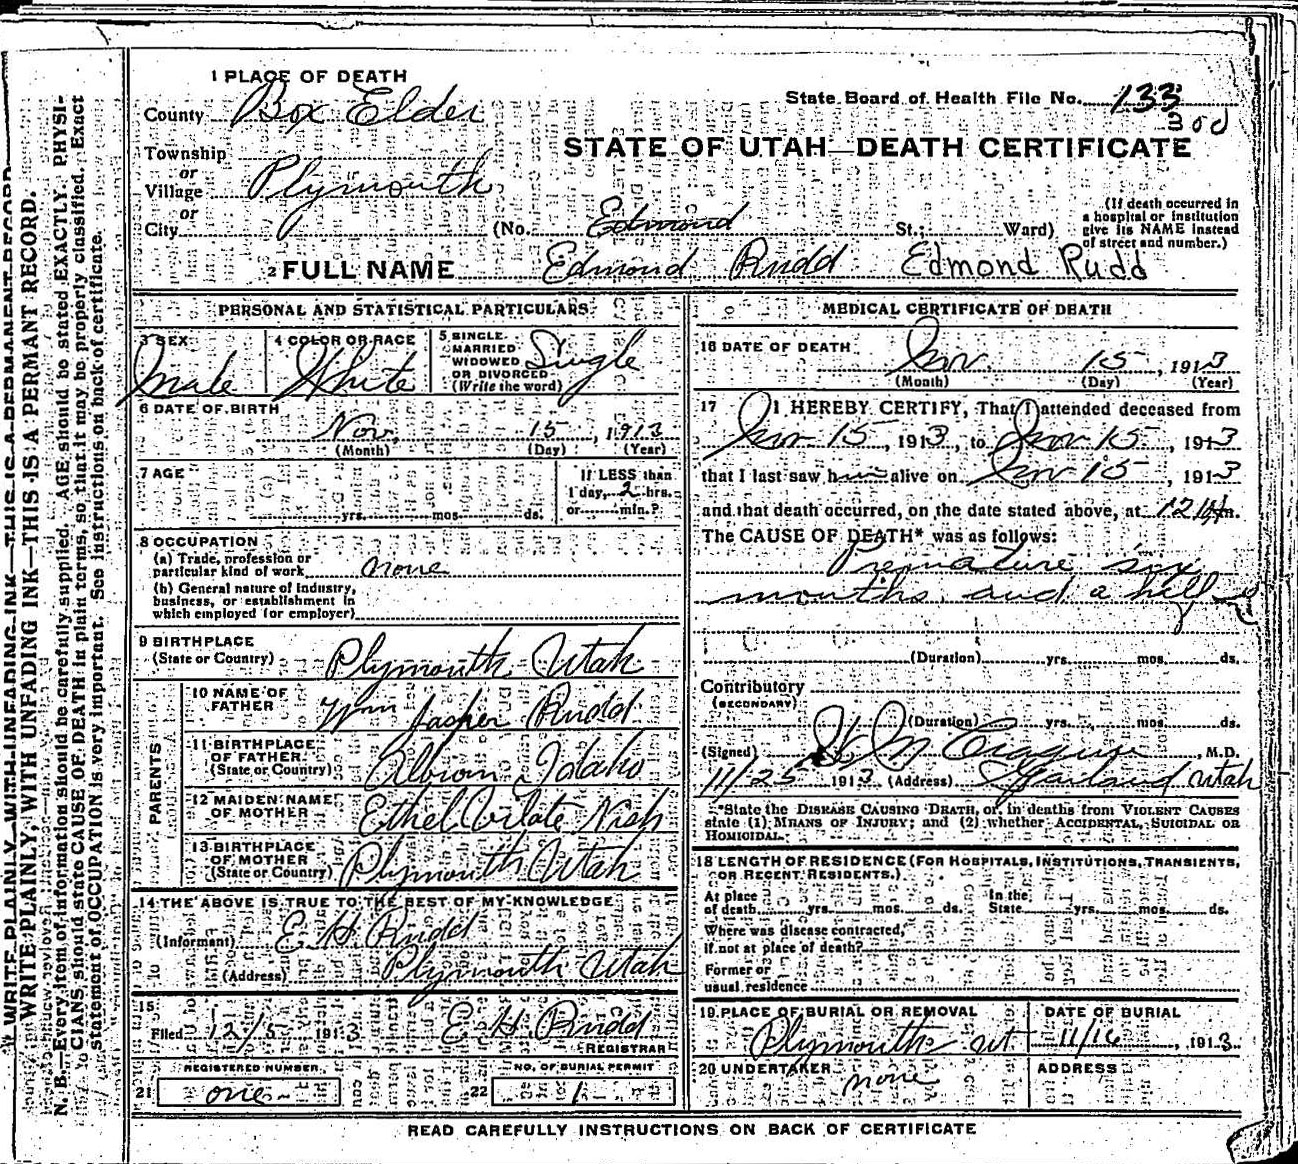 1 PLACE OF DEATH
County Box Elder
State Board of Health File No. 133
300
Township
or
Village Plymouth
or
City
STATE OF UTAH—DEATH CERTIFICATE
(No. Edmond St.; Ward)
(If death occurred in
a hospital or institution
give its NAME instead
of street and number.)
2 FULL NAME Edmond Rudd Edmond Rudd
PERSONAL AND STATISTICAL PARTICULARS
3 SEX
Male
4 COLOR OR RACE
White
5 SINGLE
MARRIED
WIDOWED
OR DIVORCED
(Write the word)
Single
6 DATE OF BIRTH
Nov. 15, 1913
(Month) (Day) (Year)
7 AGE
yrs. mos. ds.
If LESS than
1 day, 2 hrs.
or min.?
8 OCCUPATION
(a) Trade, profession or
particular kind of work none
(b) General nature of industry,
business, or establishment in
which employed (or employer)
9 BIRTHPLACE
(State or Country) Plymouth Utah
PARENTS
10 NAME OF
FATHER Wm Jasper Rudd
11 BIRTHPLACE
OF FATHER
(State or Country) Albion Idaho
12 MAIDEN NAME
OF MOTHER Ethel Vilate Nish
13 BIRTHPLACE
OF MOTHER
(State or Country) Plymouth Utah
14 THE ABOVE IS TRUE TO THE BEST OF MY KNOWLEDGE
(Informant) E H Rudd
(Address) Plymouth Utah
15
Filed 12/5 1913 E H Rudd
REGISTRAR
REGISTERED NUMBER
21 one
NO. OF BURIAL PERMIT
22 1
MEDICAL CERTIFICATE OF DEATH
16 DATE OF DEATH
Nov. 15, 1913
(Month) (Day) (Year)
17 I HEREBY CERTIFY, That I attended deceased from
Nov 15, 1913, to Nov 15, 1913
that I last saw him alive on Nov 15, 1913
and that death occurred, on the date stated above, at 12 m.
The CAUSE OF DEATH* was as follows:
Premature six
months and a half
(Duration) yrs. mos. ds.
Contributory
(SECONDARY)
(Duration) yrs. mos. ds.
(Signed) M.D.
11/25 1913 (Address) Garland Utah
*State the DISEASE CAUSING DEATH, or, in deaths from VIOLENT CAUSES
state (1) MEANS OF INJURY; and (2) whether ACCIDENTAL, SUICIDAL OR
HOMICIDAL.
18 LENGTH OF RESIDENCE (FOR HOSPITALS, INSTITUTIONS, TRANSIENTS,
OR RECENT RESIDENTS.)
At place
of death yrs. mos. ds.
In the
State yrs. mos. ds.
Where was disease contracted,
if not at place of death?
Former or
usual residence
19 PLACE OF BURIAL OR REMOVAL
Plymouth Ut
DATE OF BURIAL
11/16, 1913
20 UNDERTAKER
none
ADDRESS
READ CAREFULLY INSTRUCTIONS ON BACK OF CERTIFICATE
WRITE PLAINLY WITH UNFADING INK—THIS IS A PERMANENT RECORD
WRITE PLAINLY, WITH UNFADING INK—THIS IS A PERMANT RECORD.
N. B.—Every item of information should be carefully supplied. AGE should be stated EXACTLY. PHYSI-
CIANS should state CAUSE OF DEATH in plain terms, so that it may be properly classified. Exact
statement of OCCUPATION is very important. See instructions on back of certificate.